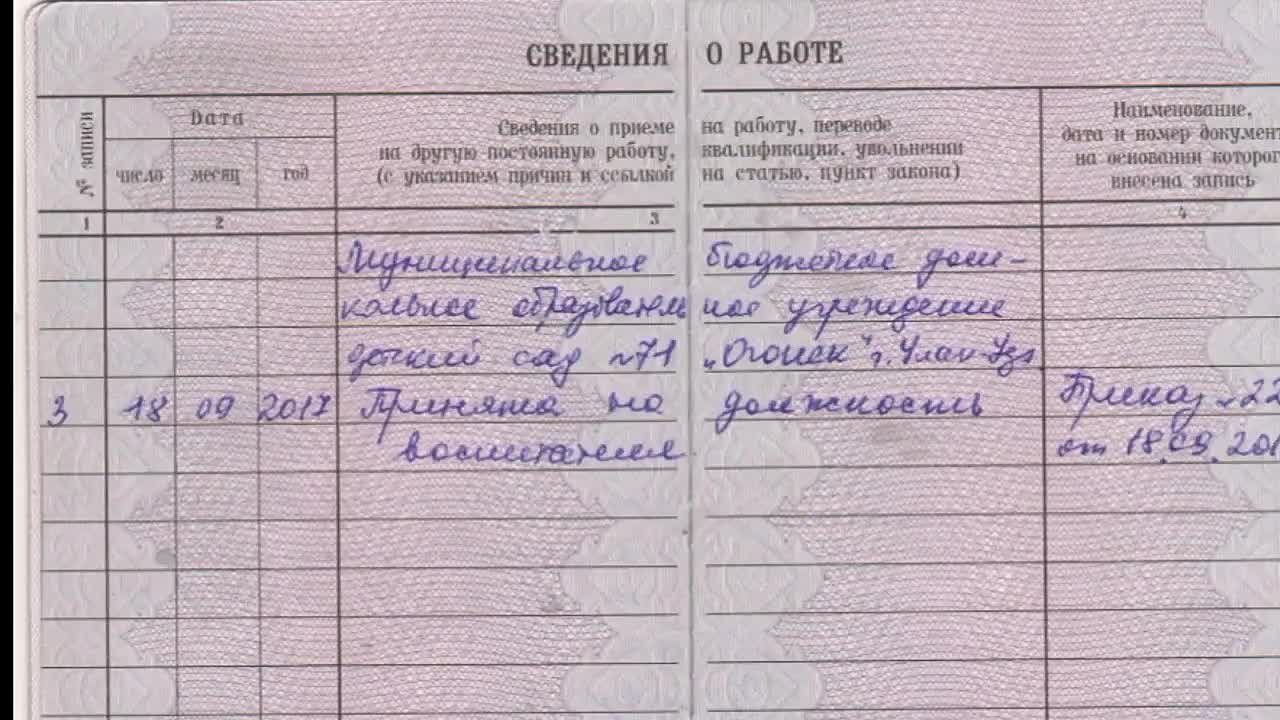 СВЕДЕНИЯ О РАБОТЕ
№ записи
Дата
число месяц год
Сведения о приеме на работу, переводе
на другую постоянную работу, квалификации, увольнении
(с указанием причин и ссылкой на статью, пункт закона)
Наименование,
дата и номер документ
на основании которог
внесена запись
1 2 3 4
Муниципальное бюджетное дош-
кольное образовательное учреждение
детский сад №71 „Огонек" г. Улан-Удэ
3 18 09 2017 Принята на должность Приказ №22
воспитателя от 18.09.201